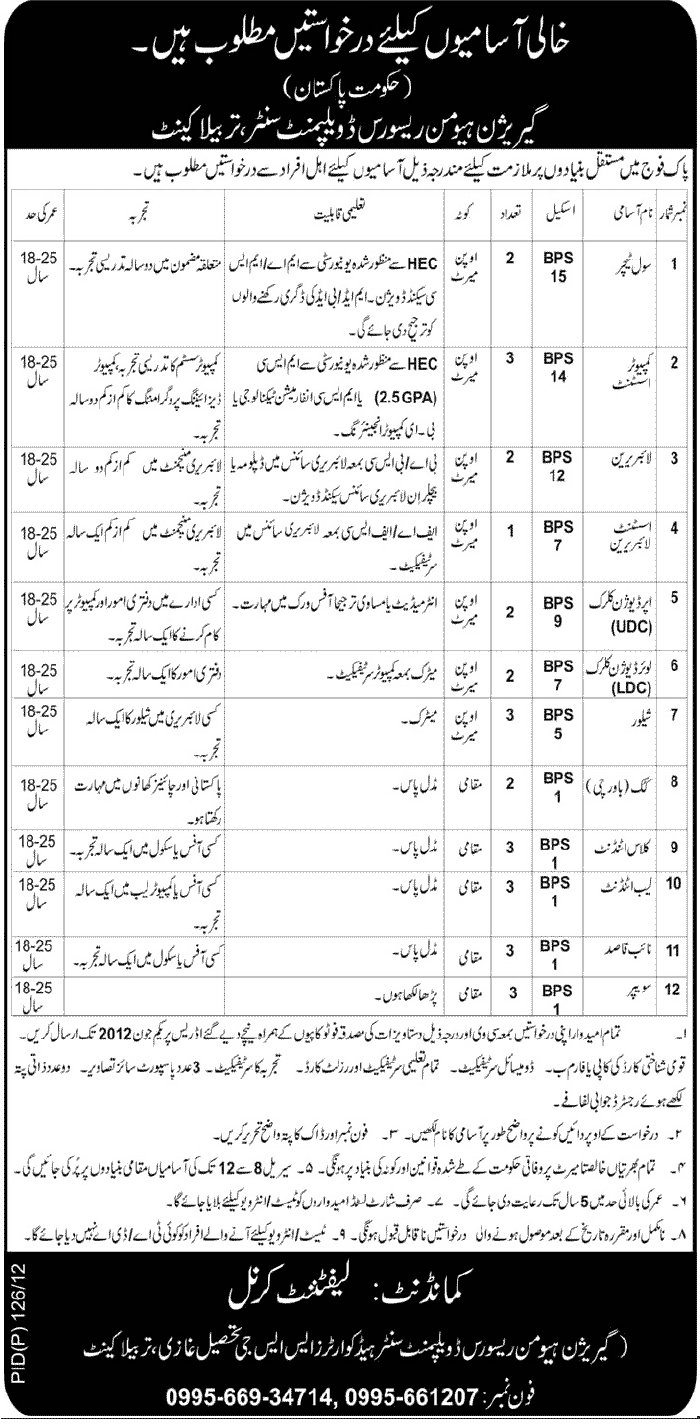 خالی آسامیوں کیلئے درخواستیں مطلوب ہیں۔
(حکومت پاکستان)
گیریژن ہیومن ریسورس ڈویلپمنٹ سنٹر، تربیلا کینٹ
پاک فوج میں مستقل بنیادوں پر ملازمت کیلئے مندرجہ ذیل آسامیوں کیلئے اہل افراد سے درخواستیں مطلوب ہیں۔
نمبر شمار نام آسامی اسکیل تعداد کوٹہ تعلیمی قابلیت تجربہ عمر کی حد
1 سول ٹیچر BPS 2 اوپن HEC سے منظور شدہ یونیورسٹی سے ایم اے/ ایم ایس متعلقہ مضمون میں دو سالہ تدریسی تجربہ۔ 18-25
15 میرٹ سی سیکنڈ ڈویژن۔ ایم ایڈ/ بی ایڈ کی ڈگری رکھنے والوں سال
کو ترجیح دی جائے گی۔
2 کمپیوٹر BPS 3 اوپن HEC سے منظور شدہ یونیورسٹی سے ایم ایس سی کمپیوٹر سسٹم کا تدریسی تجربہ، کمپیوٹر 18-25
اسسٹنٹ 14 میرٹ (2.5GPA) یا ایم ایس سی انفارمیشن ٹیکنالوجی یا ڈیزائننگ پروگرامنگ کا کم از کم دو سالہ سال
بی۔ ای کمپیوٹر انجینئرنگ۔ تجربہ۔
3 لائبریرین BPS 2 اوپن بی اے/ بی ایس سی بمعہ لائبریری سائنس میں ڈپلومہ یا لائبریری منیجمنٹ میں کم از کم دو سالہ 18-25
12 میرٹ بیچلر ان لائبریری سائنس سیکنڈ ڈویژن۔ تجربہ۔ سال
4 اسسٹنٹ BPS 1 اوپن ایف اے/ ایف ایس سی بمعہ لائبریری سائنس میں لائبریری منیجمنٹ میں کم از کم ایک سالہ 18-25
لائبریرین 7 میرٹ سرٹیفکیٹ۔ تجربہ۔ سال
5 اپر ڈیوژن کلرک BPS 2 اوپن انٹرمیڈیٹ یا مساوی ترجیحا آفس ورک میں مہارت۔ کسی ادارے میں دفتری امور اور کمپیوٹر پر 18-25
(UDC) 9 میرٹ کام کرنے کا ایک سالہ تجربہ۔ سال
6 لوئر ڈیوژن کلرک BPS 2 اوپن میٹرک بمعہ کمپیوٹر سرٹیفکیٹ۔ دفتری امور کا ایک سالہ تجربہ۔ 18-25
(LDC) 7 میرٹ سال
7 شیلور BPS 3 اوپن میٹرک۔ کسی لائبریری میں شیلور کا ایک سالہ 18-25
5 میرٹ تجربہ۔ سال
8 کک (باورچی) BPS 2 مقامی مڈل پاس۔ پاکستانی اور چائنیز کھانوں میں مہارت 18-25
1 رکھتا ہو۔ سال
9 کلاس اٹنڈنٹ BPS 3 مقامی مڈل پاس۔ کسی آفس یا سکول میں ایک سالہ تجربہ۔ 18-25
1 سال
10 لیب اٹنڈنٹ BPS 3 مقامی مڈل پاس۔ کسی آفس یا کمپیوٹر لیب میں ایک سالہ 18-25
1 تجربہ۔ سال
11 نائب قاصد BPS 3 مقامی مڈل پاس۔ کسی آفس یا سکول میں ایک سالہ تجربہ۔ 18-25
1 سال
12 سویپر BPS 3 مقامی پڑھا لکھا ہوں۔ 18-25
1 سال
۱۔ تمام امیدوار اپنی درخواستیں بمعہ سی وی اور درجہ ذیل دستاویزات کی مصدقہ فوٹو کاپیوں کے ہمراہ نیچے دیے گئے اڈریس پر یکم جون 2012 تک ارسال کریں۔
قومی شناختی کارڈ کی کاپی یا فارم ب۔ ڈومیسائل سرٹیفکیٹ۔ تمام تعلیمی سرٹیفکیٹ اور رزلٹ کارڈ۔ تجربہ کا سرٹیفکیٹ۔ 3 عدد پاسپورٹ سائز تصاویر۔ دو عدد ذاتی پتہ
لکھے ہوئے رجسٹرڈ جوابی لفافے۔
۲۔ درخواست کے اوپر دائیں کونے پر واضح طور پر آسامی کا نام لکھیں۔ ۳۔ فون نمبر اور ڈاک کا پتہ واضح تحریر کریں۔
۴۔ تمام بھرتیاں خالصتا میرٹ پر وفاقی حکومت کے طے شدہ قوانین اور کوٹہ کی بنیاد پر ہونگی۔ ۵۔ سیریل 8 سے 12 تک کی آسامیاں مقامی بنیادوں پر پُر کی جائیں گی۔
۶۔ عمر کی بالائی حد میں 5 سال تک رعایت دی جائے گی۔ ۷۔ صرف شارٹ لسٹڈ امیدواروں کو ٹیسٹ/ انٹرویو کیلئے بلایا جائے گا۔
۸۔ نامکمل اور مقررہ تاریخ کے بعد موصول ہونے والی درخواستیں ناقابل قبول ہونگی۔ ۹۔ ٹیسٹ/ انٹرویو کیلئے آنے والے افراد کو کوئی ٹی اے/ ڈی اے نہیں دیا جائے گا۔
کمانڈنٹ: لیفٹننٹ کرنل
(گیریژن ہیومن ریسورس ڈویلپمنٹ سنٹر ہیڈ کوارٹرز ایس ایس جی تحصیل غازی، تربیلا کینٹ
فون نمبر: 0995-661207 ,0995-669-34714
PID(P) 126/12